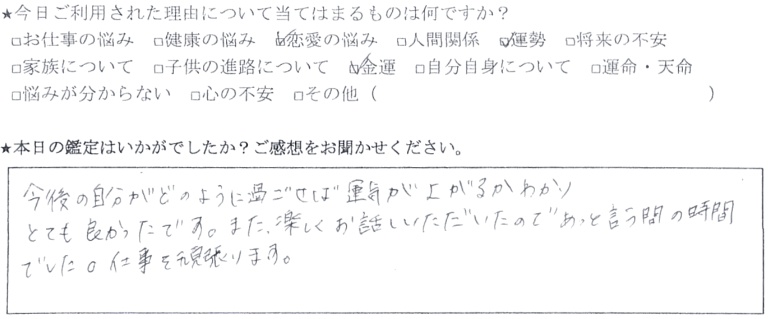 ★今日ご利用された理由について当てはまるものは何ですか？
□お仕事の悩み □健康の悩み ☑恋愛の悩み □人間関係 ☑運勢 □将来の不安
□家族について □子供の進路について ☑金運 □自分自身について □運命・天命
□悩みが分からない □心の不安 □その他（ ）
★本日の鑑定はいかがでしたか？ご感想をお聞かせください。
今後の自分がどのように過ごせば運気が上がるかわかり
とても良かったです。また、楽しくお話しいただいたのであっと言う間の時間
でした。仕事を頑張ります。